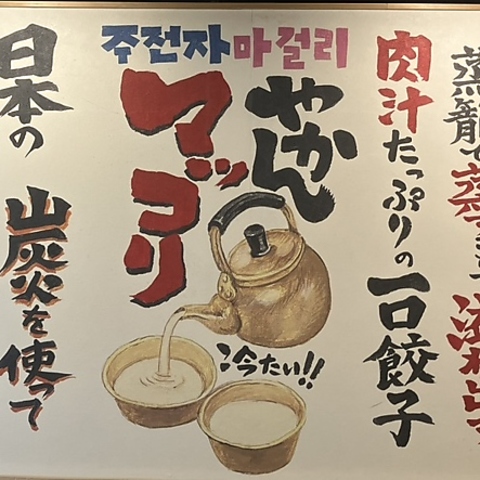 주전자마걸리
蒸籠で蒸
肉汁たっぷりの一口餃子
やかん
マッコリ
冷たい!!
日本の 炭火を使って